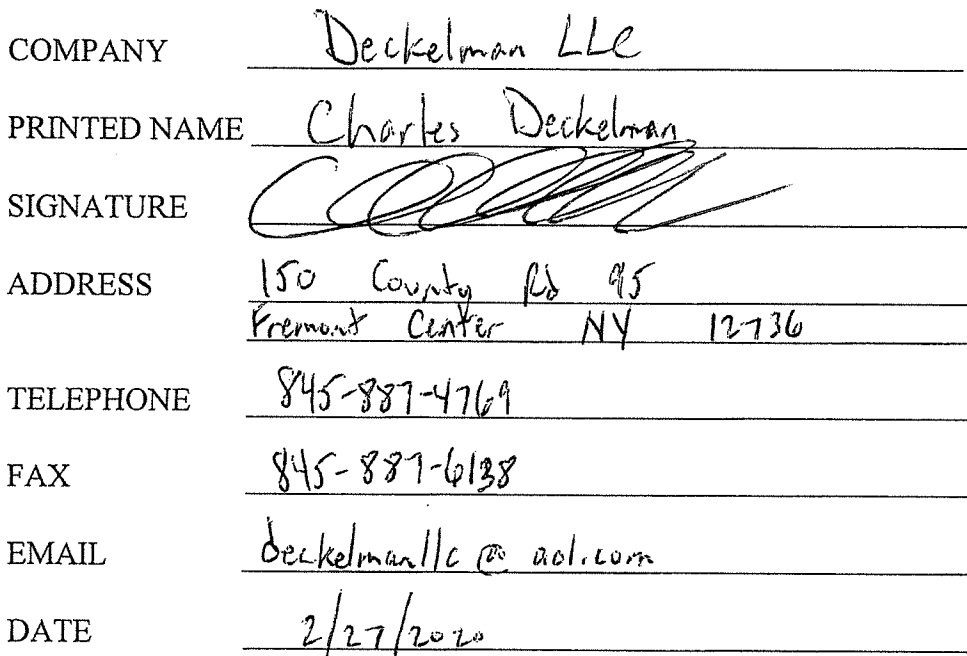 COMPANY Deckelman LLC
PRINTED NAME Charles Deckelman
SIGNATURE
ADDRESS 150 County Rd 95
Fremont Center NY 12736
TELEPHONE 845-887-4769
FAX 845-887-6138
EMAIL deckelmanllc@aol.com
DATE 2/27/2020